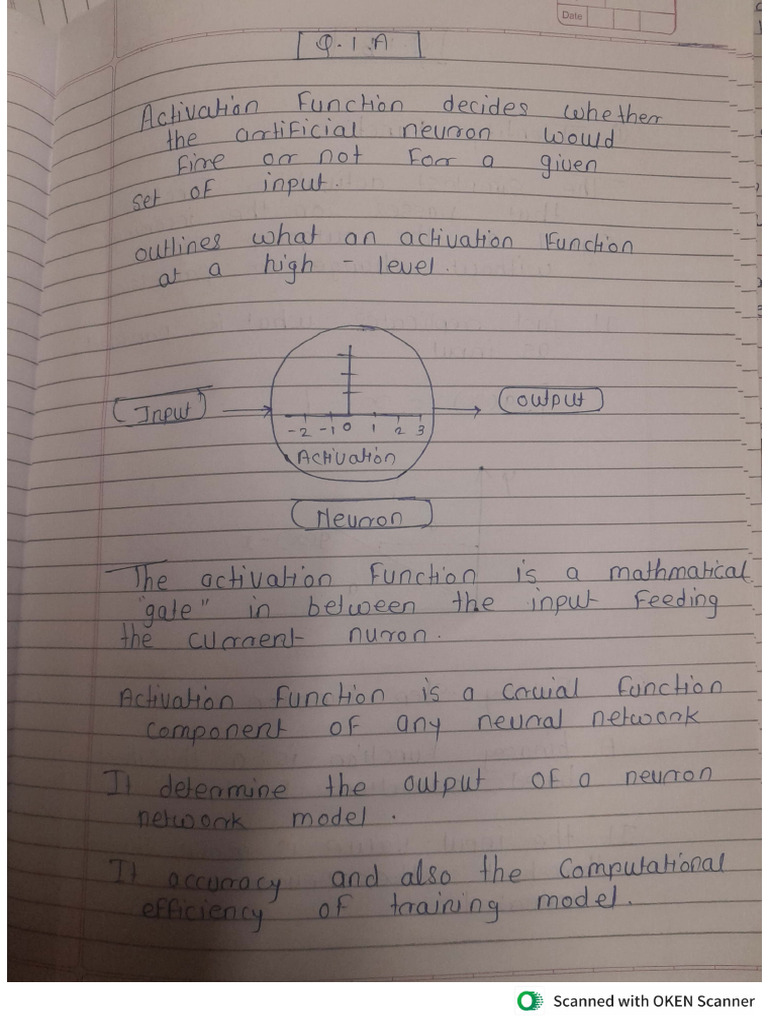 Date
Q.1.A
Activation Function decides whether
the artificial neuron would
fire or not For a given
set of input.
outlines what an activation Function
at a high - level.
Input
output
-2 -1 0 1 2 3
Activation
Neuron
The activation Function is a mathmatical
"gate" in between the input Feeding
the current nuron.
Activation Function is a cruial function
component of any neural network
It determine the output of a neuron
network model.
It accuracy and also the computational
efficiency of training model.
Scanned with OKEN Scanner